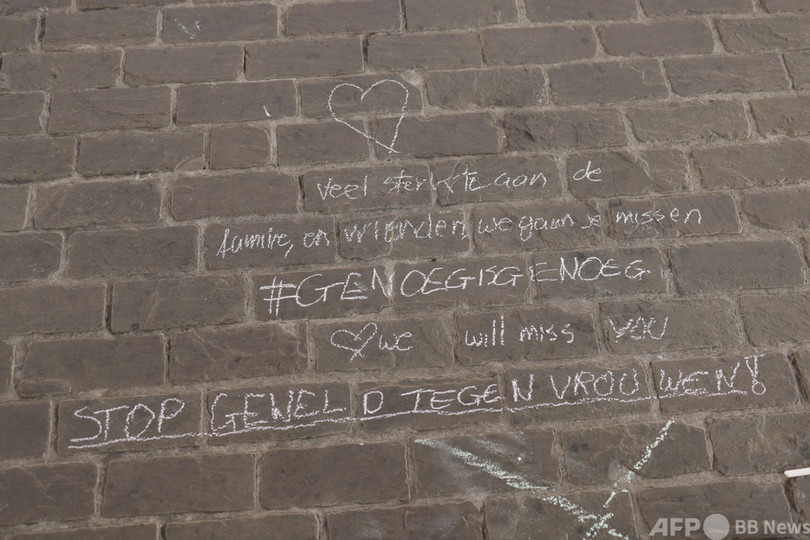 veel sterkte aan de
familie, en vrienden, we gaan je missen
#GENOEGISGENOEG
we will miss YOU
STOP GEWELD TEGEN VROUWEN!
AFP BB News